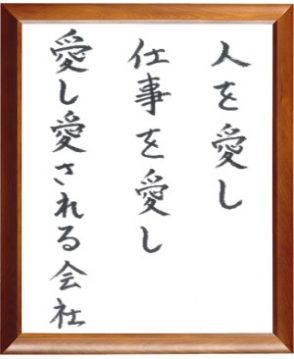 人を愛し
仕事を愛し
愛し愛される会社